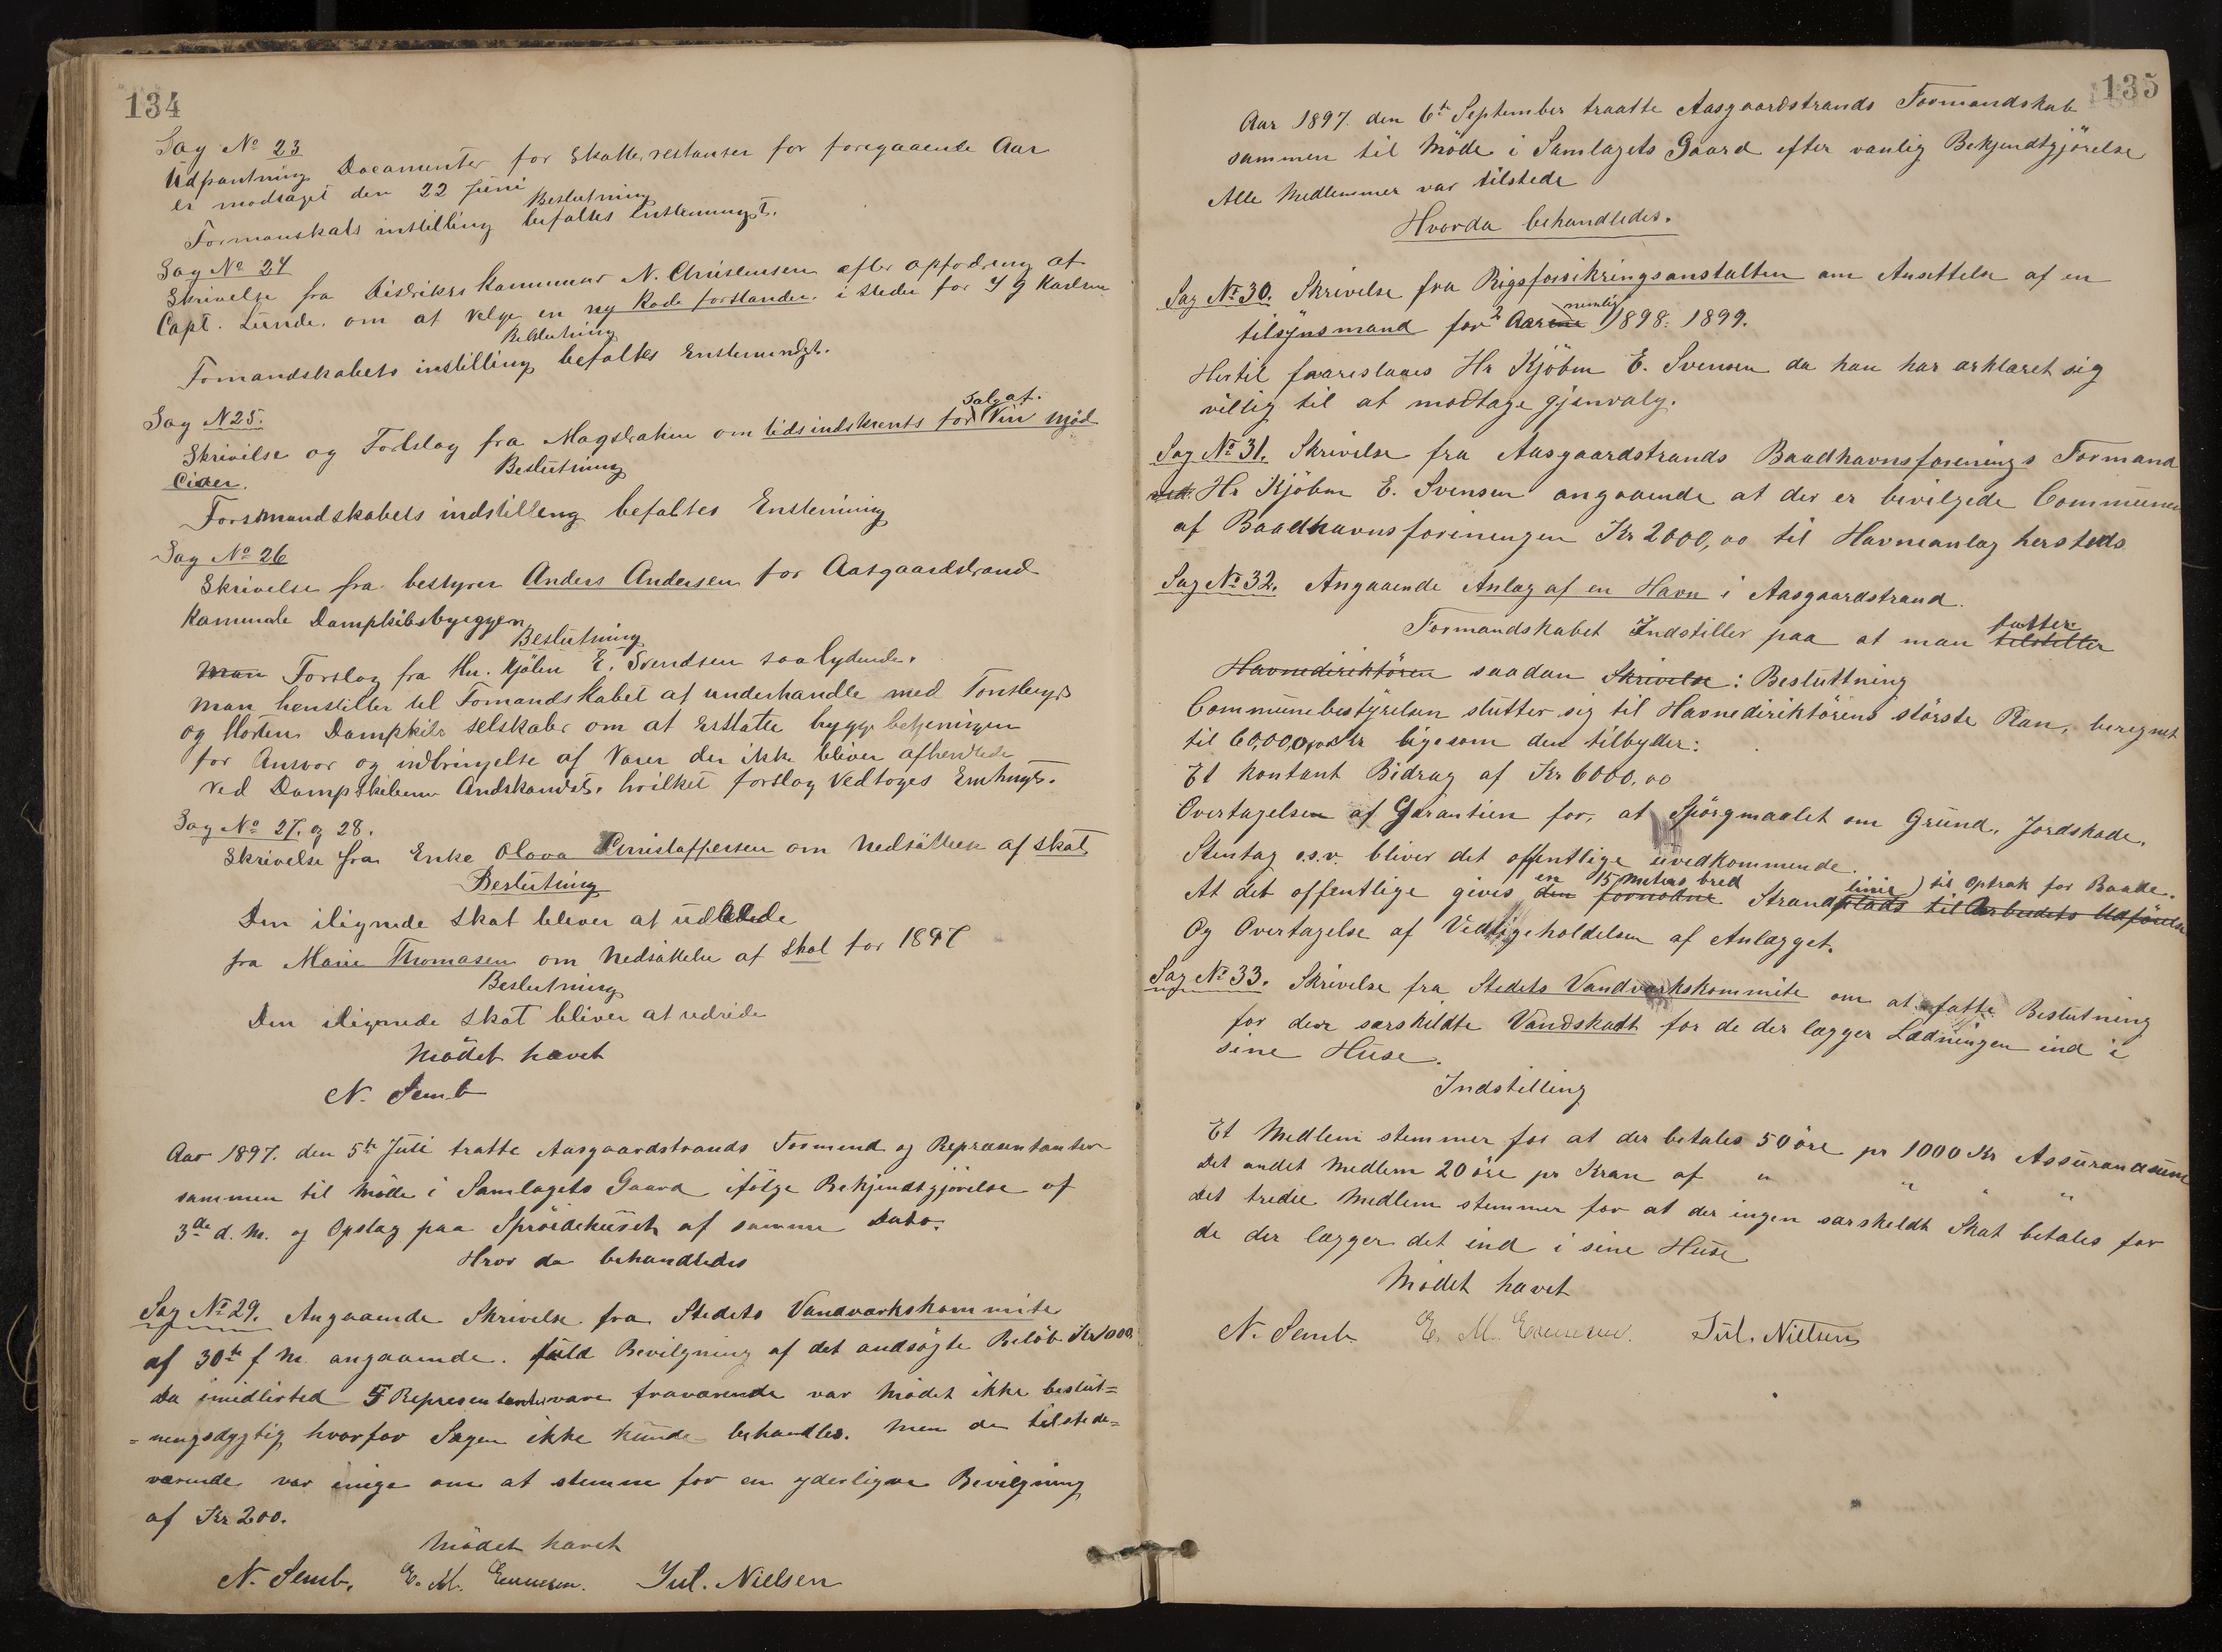 134
Sag No 23
Udpantning Documenter for Skatterestanser for foregaaende Aar
er modtaget den 22 Juni
Beslutning
Formanskats instilling befaltes Enstemmigt.
Sag No 24
Skrivelse fra Distrikts Kammerer N. Christensen efter opfodring af
Capt. Lunde. om at velge en ny Rode forstander. i Steder for J G Karlsen
Beslutning
Fomandskabets instilling befaltes Enstemmigt.
Sag N 25.
Salg af.
Skrivelse og Forslag fra Magstraten om tidsindskrents for Vin Mjød
Cider.
Beslutning
Forsmandskabets indstilling befaltes Enstemmig
Sag No 26
Skrivelse fra bestyrer Anders Andersen for Aasgaardstrand
Kamunale Dampskibsbryggen
Beslutning
Man Forslag fra Hr. Kjöbm E. Svendsen saalydende.
Man henstiller til Fomandskabet at underhandle med Tonsbergs
og Hortens Dampskibs selskaber om at erstatte brygge betjeningen
for Ansvar og indbringelse af Varer der ikke bliver afhentede
ved Dampskibenes Andskomst. hvilket forslag Vedtoges Enstmgt.
Sag No 27. og 28.
Skrivelse fra Enke Olava Christoffersen om Nedsättelse af skat
Beslutning
Den ilignede skat bliver at udrede
fra Marie Thomasen om Nedsättelse af Skat for 1897
Beslutning
Den ilignede skat bliver at udrede
Mödet hævet
N. Semb
Aar 1897. den 5te Juli tratte Aasgaardstrands Formend og Repræsentanter
sammen til Möde i Samlagets Gaard ifölge Bekjendtgjörelse af
3de d. M. og Opslag paa Spröidehuset af samme Dato.
Hvor da behandledes
Sag No 29. Angaaende Skrivelse fra Stedets Vandværkskommite
af 30te f M. angaaende. fuld Bevilgning af det andsögte Belöb Kr 1000.
Da imidlertid 5 Representanter vare fraværende var Mödet ikke beslut=
=ningsdygtig hvorfor Sagen ikke kunde behandles. Men de tilstede=
værende var enige om at stemme for en yderligere Bevilgning
af Kr 200.
Mödet hævet
N. Semb. E. M. Evensen. Jul. Nielsen
135
Aar 1897. den 6te September traatte Aasgaardstrands Formandskab
sammen til Möde i Samlagets Gaard efter vanlig Bekjendtgjörelse
Alle Medlemmer var tilstede
Hvorda behandledes.
Sag No 30. Skrivelse fra Rigsforsikringsanstalten om Ansettelse af en
tilsynsmand for 2 Aarene nemlig 1898. 1899.
Hertil faareslaaes Hr Kjöbm E. Svensen da han har ærklæret sig
villig til at modtage gjenvalg.
Sag No 31. Skrivelse fra Aasgaardstrands Baadhavnsforenings Formand
ved. Hr Kjöbm E. Svensen angaaende at der er bevilgede Communen
af Baadhavnsforeningen Kr 2000,00 til Havneanlæg hersteds
Sag No 32. Angaaende Anlæg af en Havn i Aasgaardstrand.
Formandskabet Indstiller paa at man fatter tilstiller
Havnedirektören saadan Skrivelse: Besluttning
Communebestyrelsen slutter sig til Havnedirektörens störste Plan, beregnet
til 60,000,00 Kr ligesom den tilbyder:
Et kontant Bidrag af Kr 6000.00
Overtagelsen af Garantien for, at Spörgmaalet om Grund, Jordskade,
Stentag o.s.v. bliver det offentlige uvedkommende.
At det offentlige gives den en fornodne 15 meters bred Strandplads linie til Optræk for Baade. til Arbeidets Udförelse
Og Overtagelse af Vedligeholdelsen af Anlægget.
Sag No 33. Skrivelse fra Stedets Vandværkskommite om at fatte Beslutning
for den særskildte Vandskatt for de der lægger Ledningen ind i
sine Huse.
Indstilling
Et Medlem stemmer for at der betales 50 öre pr 1000 Kr Assurandsum
Det andet Medlem 20 öre pr Kran af " " " "
Det tredie Medlem stemmer for at der ingen særskeldt Skat betales for
de der lægger det ind i sine Huse
Mödet hævet
N. Semb E. M. Evensen. Jul. Nielsen